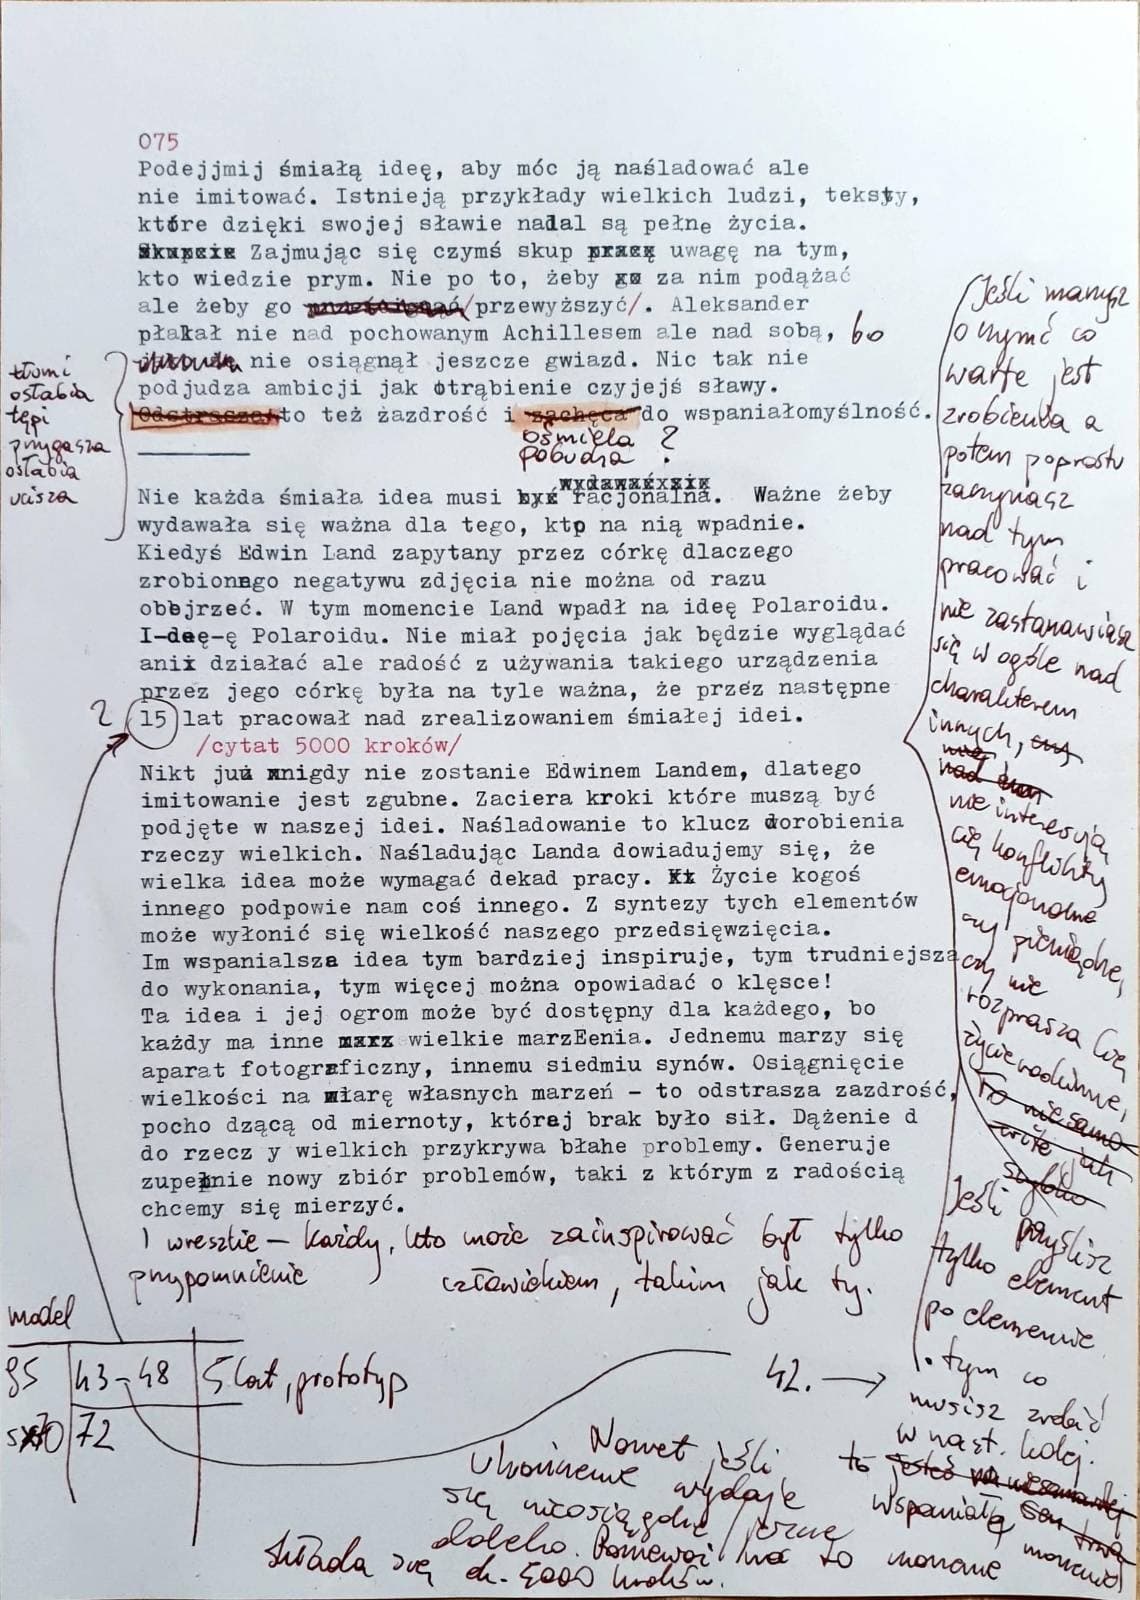 075
Podejjmij śmiałą ideę, aby móc ją naśladować ale
nie imitować. Istnieją przykłady wielkich ludzi, teksty,
które dzięki swojej sławie nadal są pełne życia.
Skupcie Zajmując się czymś skup pracę uwagę na tym,
kto wiedzie prym. Nie po to, żeby go za nim podążać
ale żeby go prześcignąć/przewyższyć/. Aleksander
płakał nie nad pochowanym Achillesem ale nad sobą, bo
nie osiągnął jeszcze gwiazd. Nic tak nie
podjudza ambicji jak otrąbienie czyjejś sławy.
Odstrasza to też żazdrość i zachęca do wspaniałomyślność.
ośmiela ?
pobudza
tłumi
osłabia
tępi
przygasza
osłabia
ucisza
wydawaćxsię
Nie każda śmiała idea musi być racjonalna. Ważne żeby
wydawała się ważna dla tego, ktp na nią wpadnie.
Kiedyś Edwin Land zapytany przez córkę dlaczego
zrobionego negatywu zdjęcia nie można od razu
obejrzeć. W tym momencie Land wpadł na ideę Polaroidu.
I-deę-ę Polaroidu. Nie miał pojęcia jak będzie wyglądać
anix działać ale radość z używania takiego urządzenia
przez jego córkę była na tyle ważna, że przez następne
? 15 lat pracował nad zrealizowaniem śmiałej idei.
/cytat 5000 kroków/
Nikt już nigdy nie zostanie Edwinem Landem, dlatego
imitowanie jest zgubne. Zaciera kroki które muszą być
podjęte w naszej idei. Naśladowanie to klucz dorobienia
rzeczy wielkich. Naśladując Landa dowiadujemy się, że
wielka idea może wymagać dekad pracy. Życie kogoś
innego podpowie nam coś innego. Z syntezy tych elementów
może wyłonić się wielkość naszego przedsięwzięcia.
Im wspanialsza idea tym bardziej inspiruje, tym trudniejsza
do wykonania, tym więcej można opowiadać o klęsce!
Ta idea i jej ogrom może być dostępny dla każdego, bo
każdy ma inne marz wielkie marzEenia. Jednemu marzy się
aparat fotograficzny, innemu siedmiu synów. Osiągnięcie
wielkości na miarę własnych marzeń - to odstrasza zazdrość,
pocho dzącą od miernoty, której brak było sił. Dążenie d
do rzecz y wielkich przykrywa błahe problemy. Generuje
zupełnie nowy zbiór problemów, taki z którym z radością
chcemy się mierzyć.
I wreszcie – każdy, kto może zainspirować był tylko
przypomnienie człowiekiem, takim jak ty.
Jeśli marzysz
o czymś co
warte jest
zrobienia a
potem poprostu
zaczynasz
nad tym
pracować i
nie zastanawiasz
się w ogóle nad
charakterem
innych, czy
nad
nie interesują
cię konflikty
emocjonalne
czy pieniądze,
czy nie
rozprasza Cię
życie rodzinne,
To nie samo
jak
szybko
Jeśli myślisz
tylko element
po elemencie
. tym co
musisz zrobić
w nast. kolej.
to jesteś
wspaniałą
model
95 43-48 5 lat, prototyp
sx70 72
42. →
Nawet jeśli
ukończenie wydaje
się nieosiągalne jeszcze
daleko. Ponieważ na to marzenie
składa się ok. 5000 kroków.